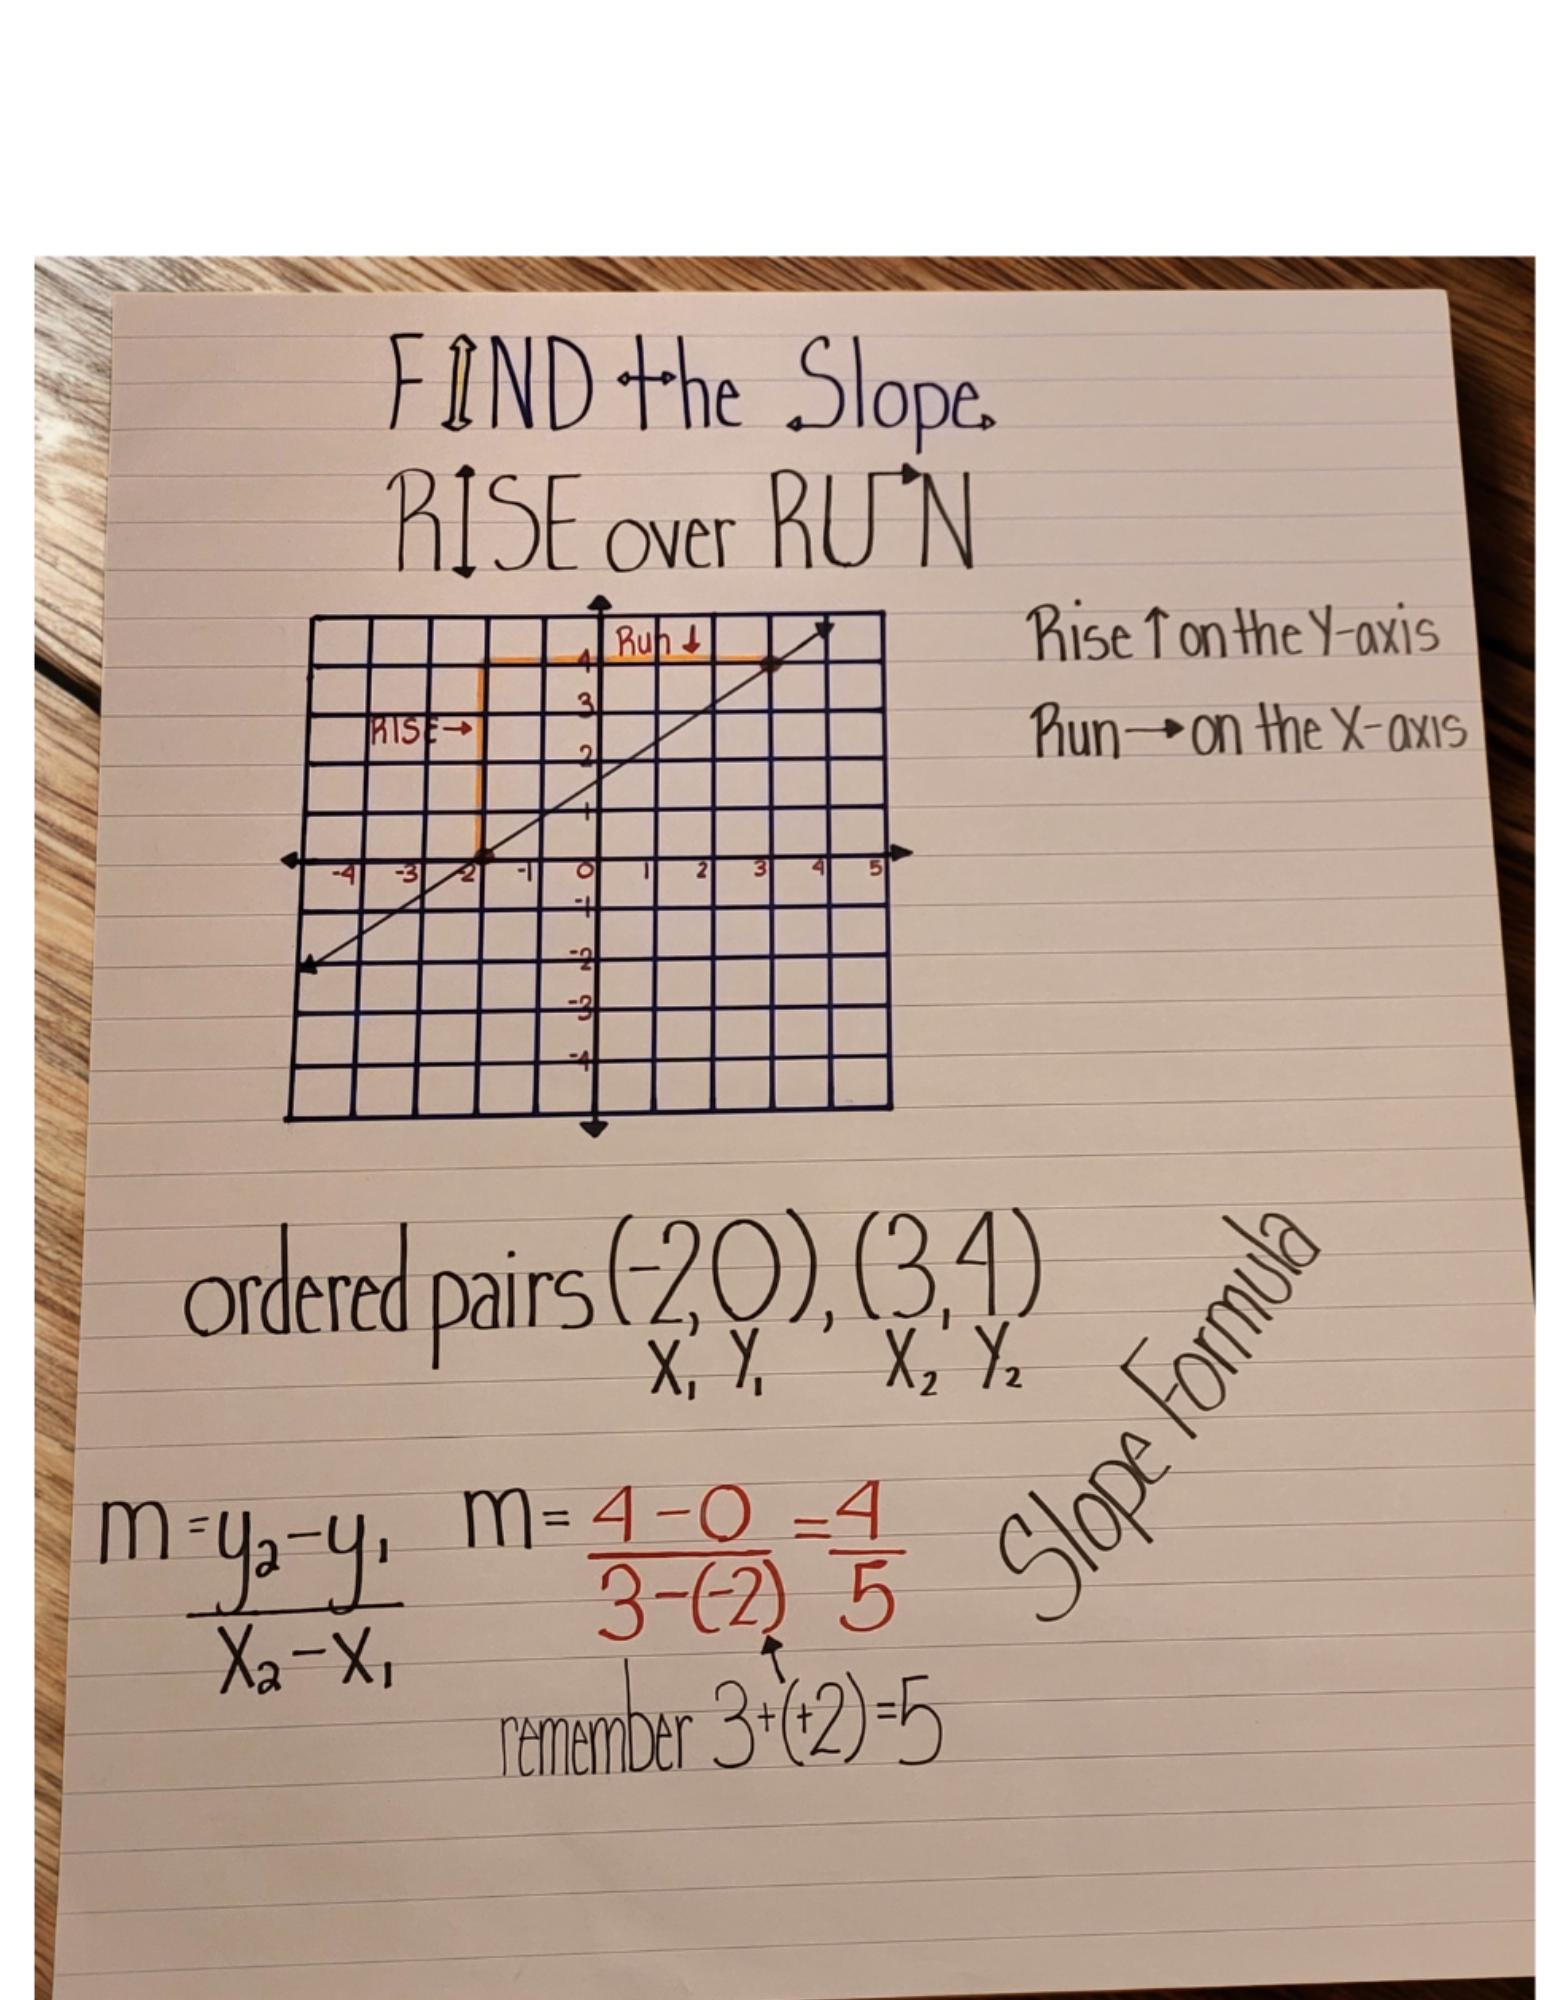 FIND the Slope
RISE over RUN
Run ↓
Rise ↑ on the Y-axis
4
3
RISE →
Run → on the X-axis
2
1
-4 -3 -2 -1 0 1 2 3 4 5
-1
-2
-3
-4
ordered pairs (-2,0), (3,4)
X₁ Y₁ X₂ Y₂
Slope Formula
m = y₂-y₁ m = 4-0 = 4
x₂-x₁ 3-(-2) 5
remember 3+(+2)=5